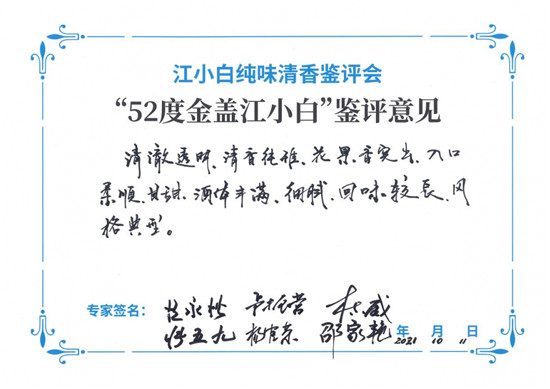 江小白纯味清香鉴评会
“52度金盖江小白”鉴评意见
清澈透明、清香纯雅、花果香突出、入口
柔顺、甘甜、酒体丰满、细腻、回味较长、风
格典型。
专家签名： 杜威
邵家艳 年 月 日
2021 10 11